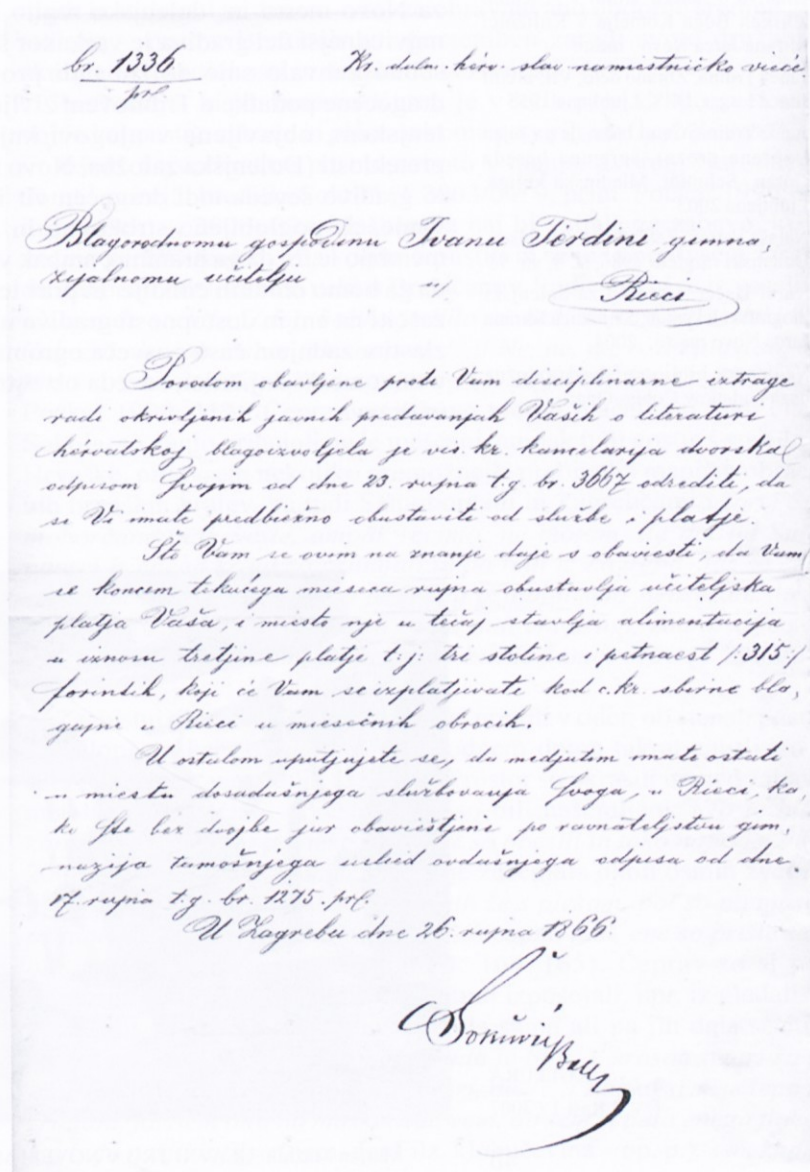 br. 1336 Kr. dalm. hèrv. slav. namiestničko vieće
prs.
Blagorodnomu gospodinu Ivanu Tèrdini, gimna,
zijalnomu učitelju
Rieci
Povodom obavljene proti Vam disciplinarne iztrage
radi okrivljenih javnih predavanjah Vaših o literaturi
hèrvatskoj blagoizvoljela je vis. kr. kancelarija dvorska
odpisom Svojim od dne 23. rujna t. g. br. 3667 odrediti, da
se Vi imate predbiežno obustaviti od službe i platje.
Što Vam se ovim na znanje daje s obaviesti, da Vam
se koncem tekućega mieseca rujna obustavlja učiteljska
platja Vaša, i miesto nje u tečaj stavlja alimentacija
u iznosu tretjine platje t. j. tri stotine i petnaest /:315:/
forintih, koji će Vam se izplatjivati kod c. kr. sbirne bla,
gajne u Rieci u miesečnih obrocih.
U ostalom uputjujete se, da medjutim imate ostati
u miestu dosadašnjega službovanja Svoga, u Rieci, ka,
ko ste bez dvojbe jur obaviešćeni po ravnateljstvu gim,
nazija tamošnjega uslied ovdašnjega odpisa od dne
17. rujna t. g. br. 1275. prs.
U Zagrebu dne 26. rujna 1866.